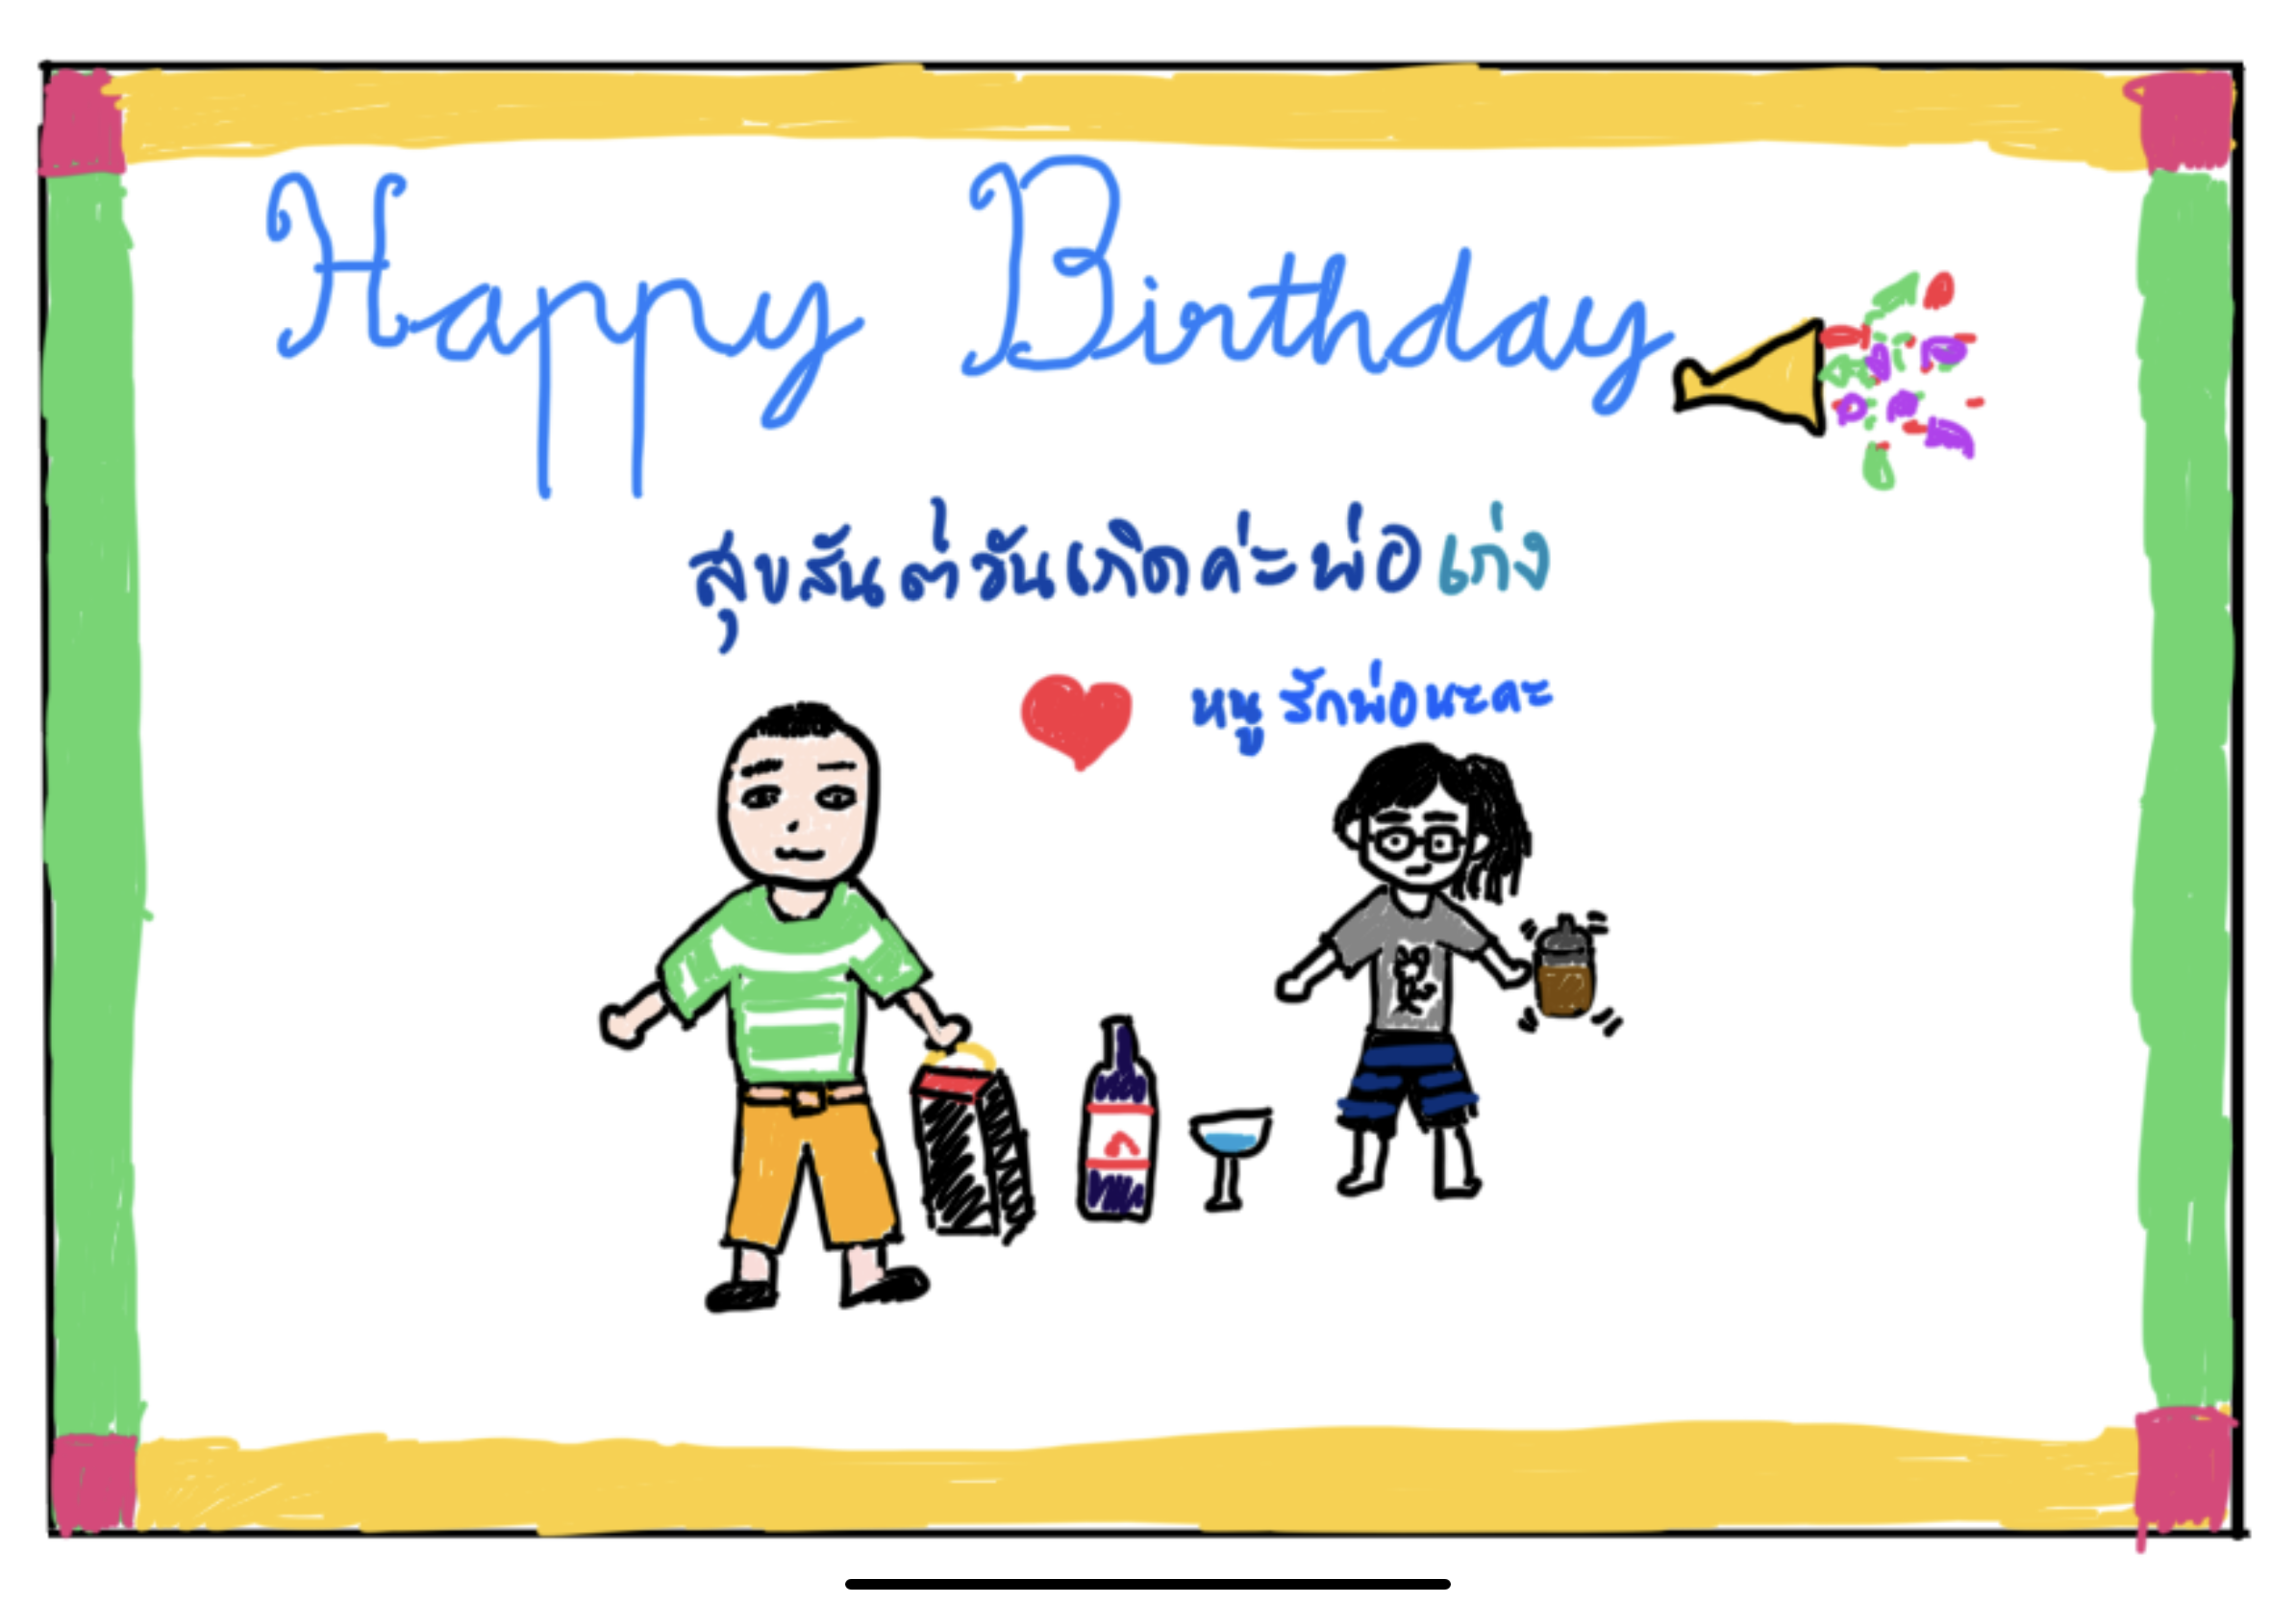 Happy Birthday
สุขสันต์วันเกิดค่ะพ่อเก่ง
หนูรักพ่อนะคะ